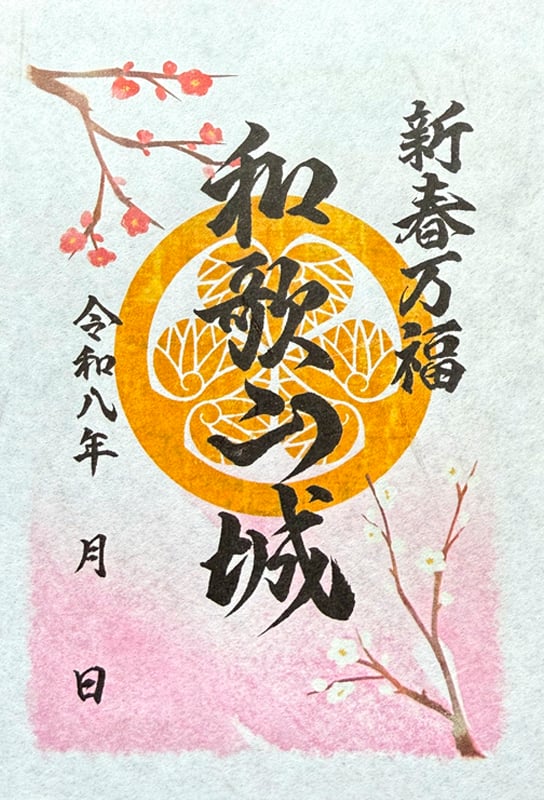 新春万福
和歌山城
令和八年
月
日